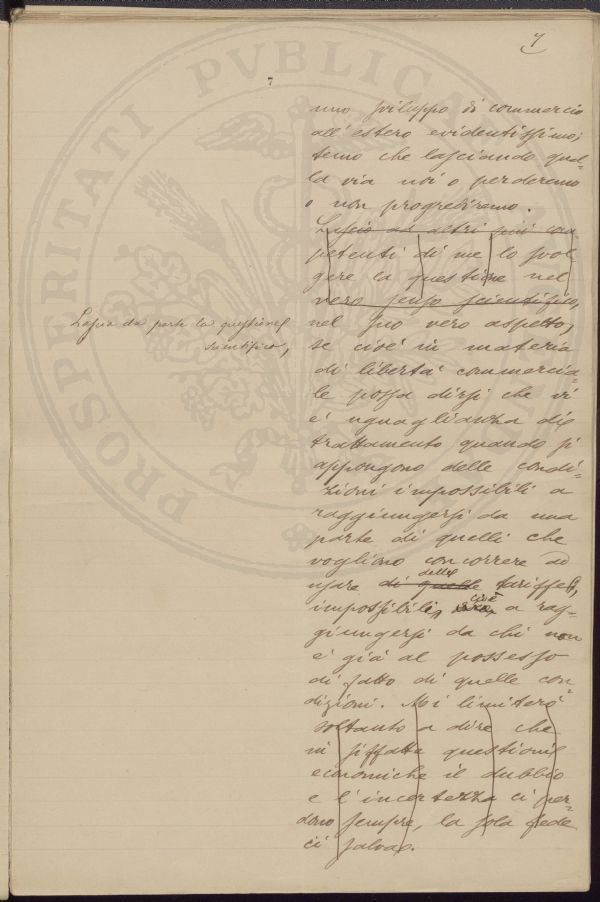 7
7
PROSPERITATI PVBLICAE
uno sviluppo di commercio
all'estero evidentissimo;
temo che lasciando quel=
la via noi o perderemo
o non progrediremo.
Lascio ad altri più com
petenti di me lo svol
gere la questione nel
vero senso scientifico,
Lascia da parte la questione
scientifica,
nel suo vero aspetto,
se cioè in materia
di libertà commercia=
le possa dirsi che vi
è uguaglianza di
trattamento quando si
appongono delle condi=
zioni impossibili a
raggiungersi da una
parte di quelli che
vogliono concorrere ad
delle
usare di quelle tariffe,
cioè
impossibili, a rag=
giungersi da chi non
è già al possesso
di fatto di quelle con=
dizioni. Mi limiterò
soltanto a dire che
in siffatte questioni
economiche il dubbio
e l'incertezza ci per=
dono sempre, la sola fede
ci salva.